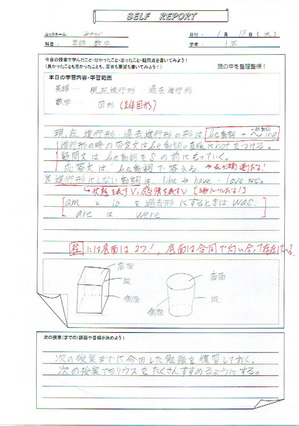 SELF REPORT
ニックネーム
日付：1月18日（水）
科目：英語 数学
学年：1年
今日の授業で学んだこと・分かったこと・思ったこと・疑問点を書いてみよう！
頭の中を整理整頓！
本日の学習内容・学習範囲
英語… 現在進行形 過去進行形
数学… 図形（立体図形）
現在進行形、過去進行形の形は be動詞＋〜ing
進行形の時の否定文はbe動詞の直後にnotをつける。
疑問文はbe動詞をSの前にもっていく。
応答文はbe動詞で答える。
※進行形にしない動詞は like、have、love etc.
→状態を表すV、感情を表すV
am・is を過去形にするときは was.
are は were
柱には底面は2つ！底面は合同で向い合って存在している。
底面
辺
側面
底面
側面
次の授業（まで）の課題や目標を決めよう！
次の授業までに今回した勉強を復習しておく。
次の授業でもリウスをたくさんすすめるようにする。